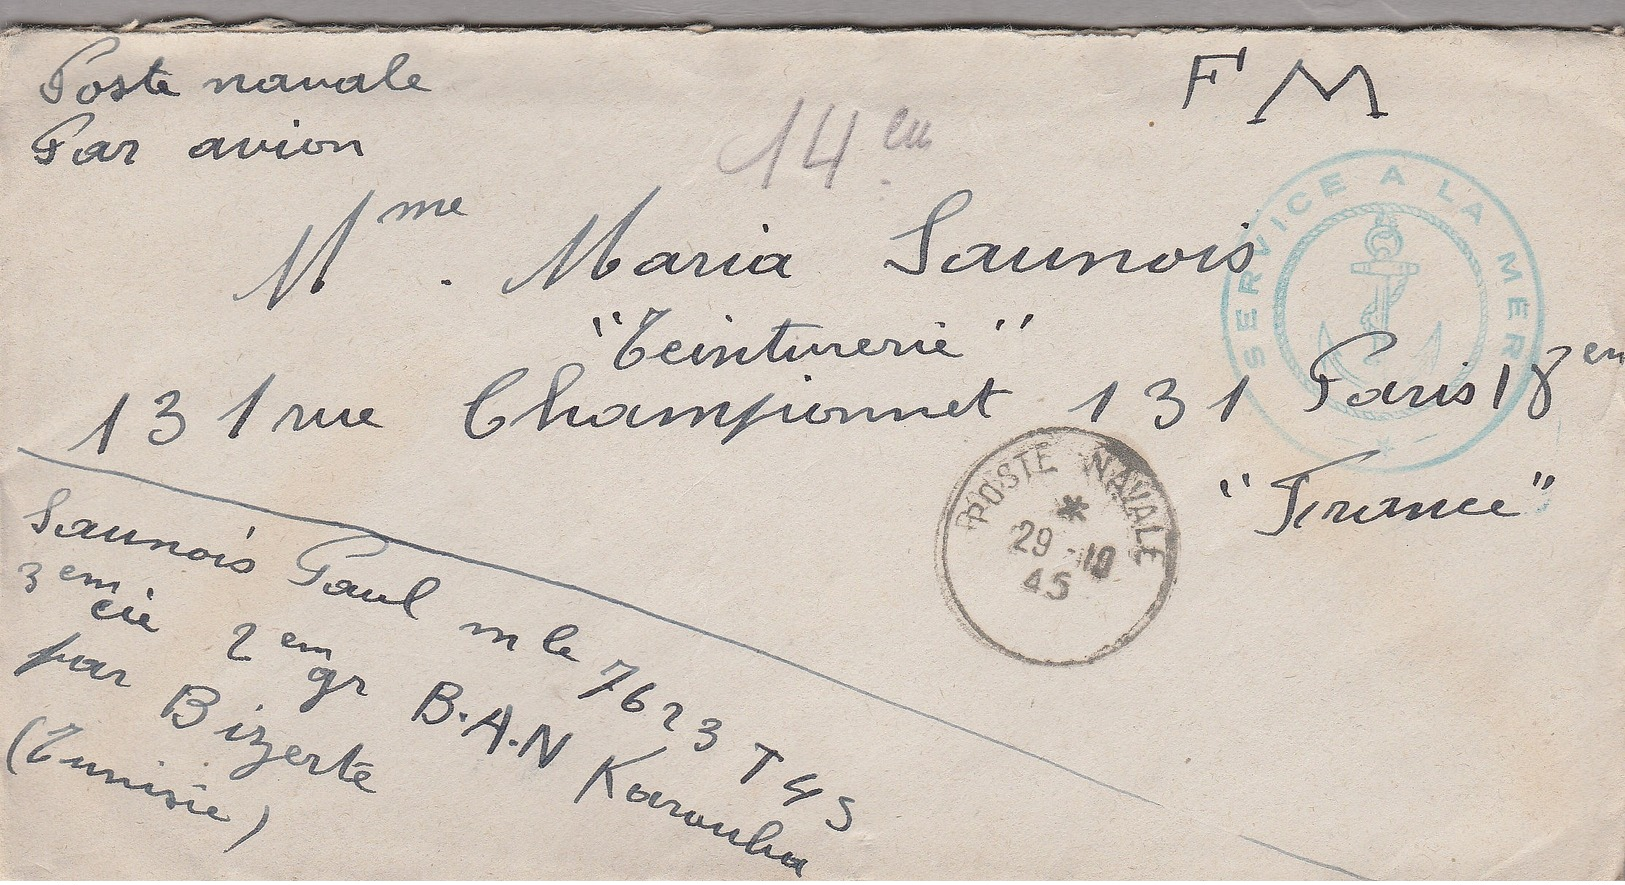 Poste navale
Par avion
F M
14 em
Mme. Maria Saunois
"Teinturerie"
131 rue Championnet 131 Paris 18em
"France"
SERVICE A LA MER
POSTE NAVALE
*
29 - 10
45
Saunois Paul mle 7623 T 45
3em cie 2em gr B.A.N Karouba
par Bizerte
(Tunisie)